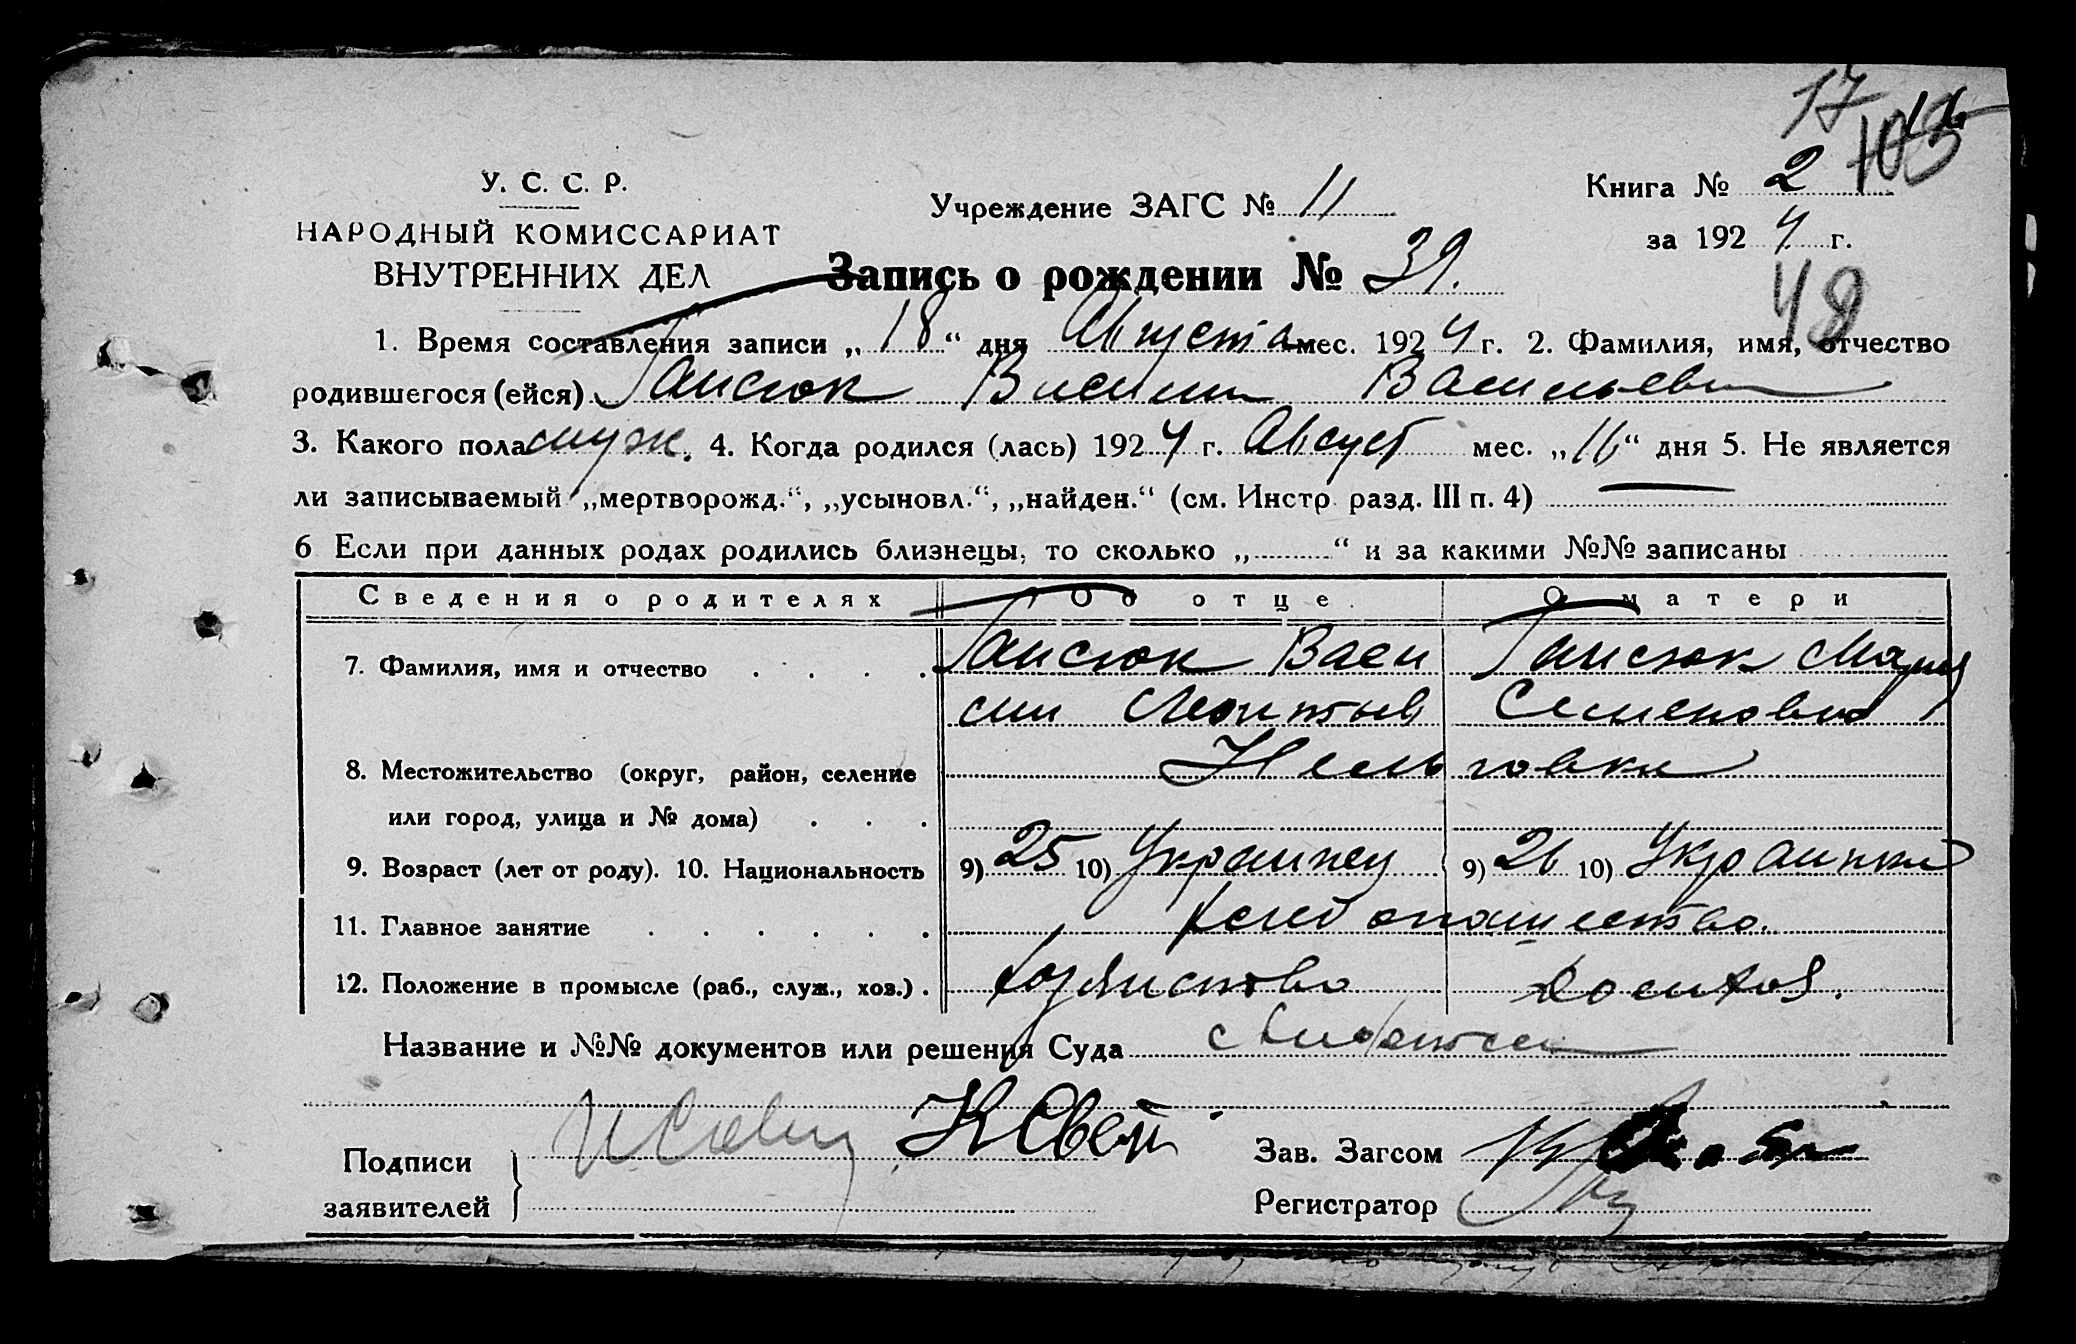 17
103
У. С. С. Р.
Учреждение ЗАГС № 11
Книга № 2
НАРОДНЫЙ КОМИССАРИАТ
за 1924 г.
ВНУТРЕННИХ ДЕЛ
Запись о рождении № 39.
48
1. Время составления записи „18“ дня Августа мес. 1924 г. 2. Фамилия, имя, отчество
родившегося (ейся) Гансюк Васильев
3. Какого пола муж. 4. Когда родился (лась) 1924 г. Август мес. „16“ дня 5. Не является
ли записываемый „мертворожд.“, „усыновл.“, „найден.“ (см. Инстр. разд. III п. 4)
6 Если при данных родах родились близнецы, то сколько „ “ и за какими №№ записаны
Сведения о родителях Об отце. О матери
7. Фамилия, имя и отчество Гансюк Васи Гансюк Мария
Леонтьев Семеновна
8. Местожительство (округ, район, селение
или город, улица и № дома)
9. Возраст (лет от роду). 10. Национальность 9) 25 10) Украинец 9) 26 10) Украинка
11. Главное занятие хлебопашество.
12. Положение в промысле (раб., служ., хоз.)
Название и №№ документов или решения Суда
Подписи
Зав. Загсом
заявителей
Регистратор